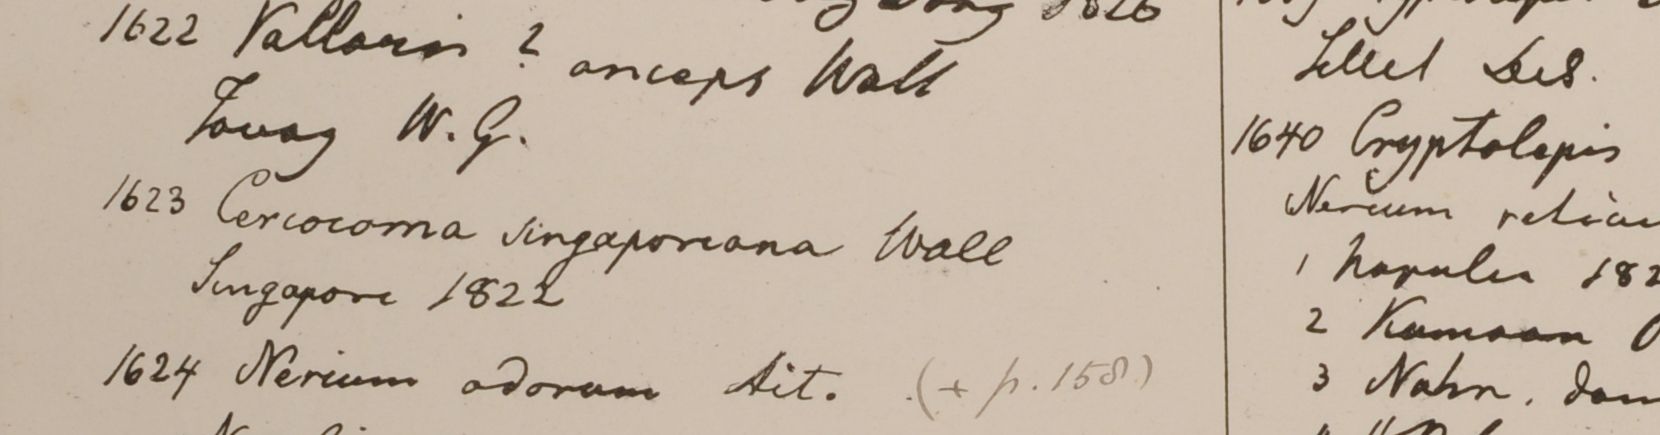 1826
1622 Vallaris ? anceps Wall
Tavoy W. G.
1623 Cercocoma singaporeana Wall
Singapore 1822
1624 Nerium odorum Ait. (+ p. 158)
Sillet Des.
1640 Cryptolepis
Nerium reticu
1 Napalia 182
2 Kamaon
3 Nahn. Dom